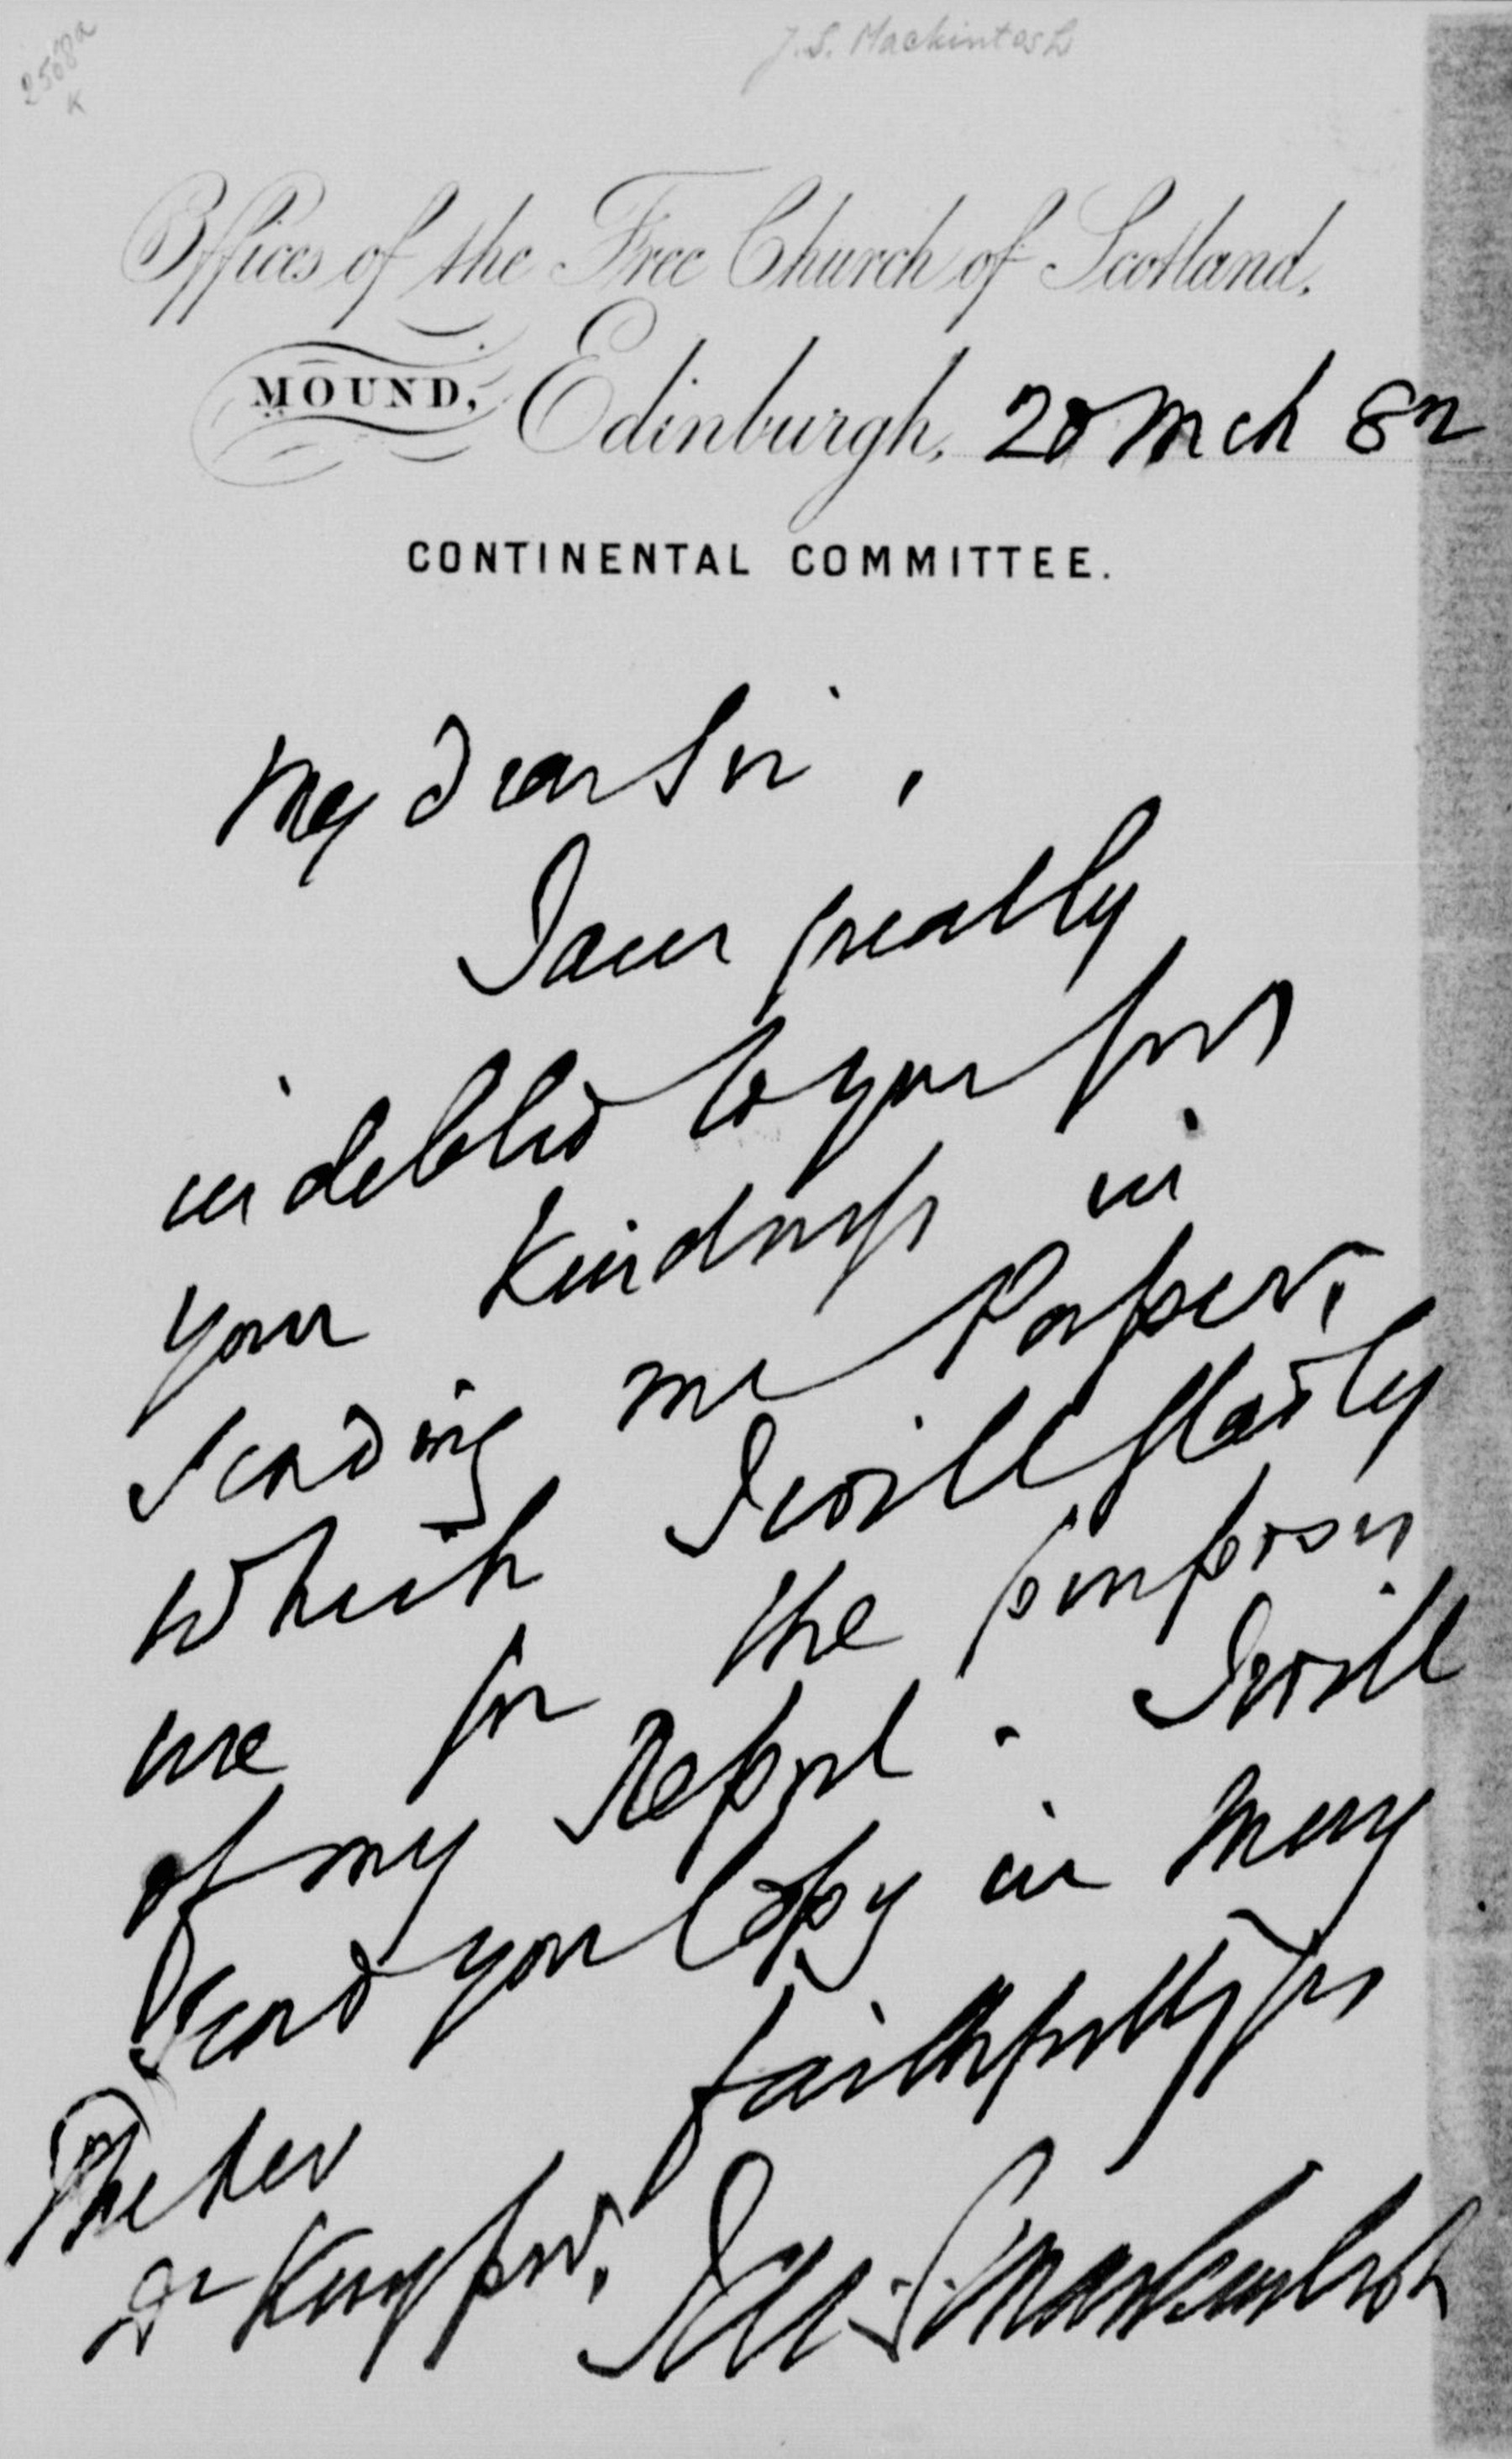 J. S. Mackintosh
2568a
K
Offices of the Free Church of Scotland.
MOUND, Edinburgh, 20 Mch 82
CONTINENTAL COMMITTEE.
My dear Sir,
I am greatly
indebted to you for
your kindness in
sending me Papers,
which I will gladly
use for the purposes
of my Report. I will
send you Copy in May
faithfully yrs
The Rev
Dr Kuyper.
S. Mackintosh